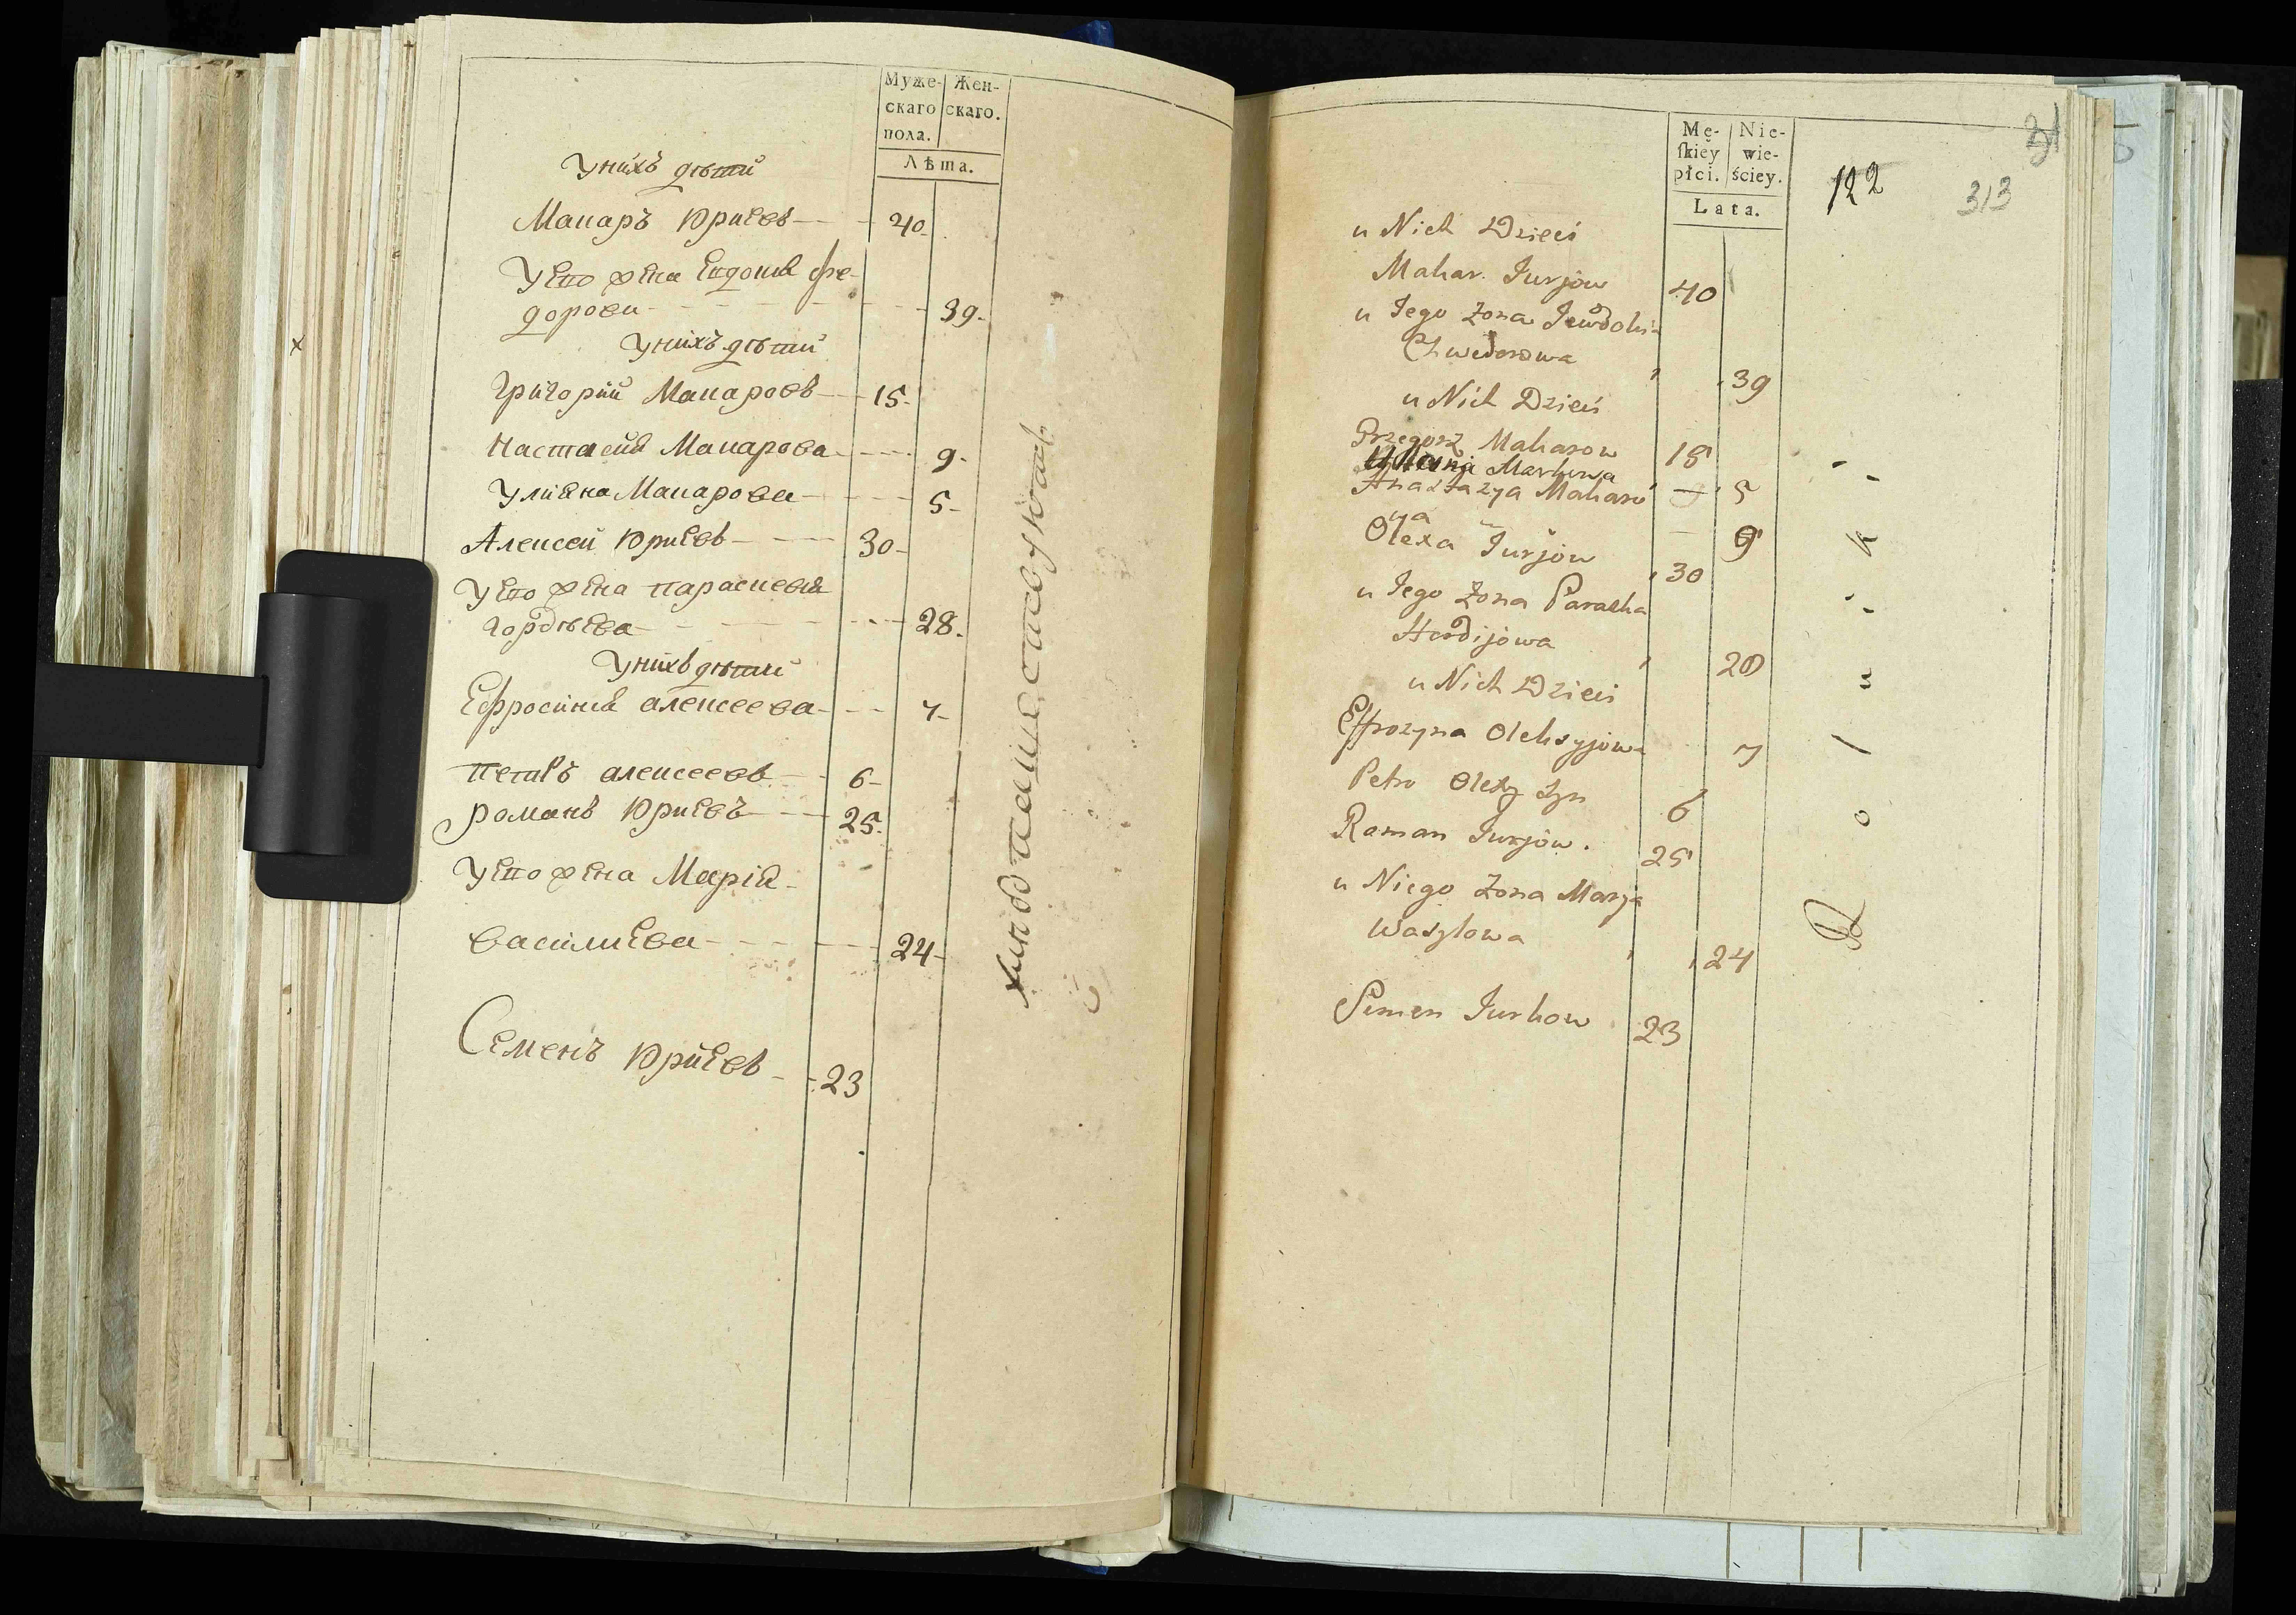 Муже- Жен-
скаго скаго.
пола.
Лѣта.
Унихъ дѣтй
Макаръ Юриевъ 40
Уево жена Евдокия Фе-
дорова 39
Унихъ дѣтй
Григорий Макаровъ 15
Настасия Макарова 9
Улияна Макарова 5
Алексей Юриевъ 30
Уево жена Параскевия
Гордѣева 28
Унихъ дѣтй
Ефросиния Алексеева 7
Петръ Алексеевъ 6
Романъ Юриевъ 25
Уево жена Марія
Василиева 24
Семенъ Юриевъ 23
Mę- Nie-
ſkiey wie-
płci. ściey.
Lata.
122
313
31
u Nich Dzieci
Makar Jurjow 40
u Jego Żona Jewdoki
Chwedorowa 39
u Nich Dzieci
Grzegorz Makarow 15
Makarowa 5
Anastazya Makaro
wa 9
Olexa Jurjow 30
u Jego Żona Paraska
Hordijowa 28
u Nich Dzieci
Effrozyna Oleksyjowa 7
Petro Olexy Syn 6
Roman Jurjow. 25
u Niego Żona Marja
Wasylowa 24
Semen Jurkow 23